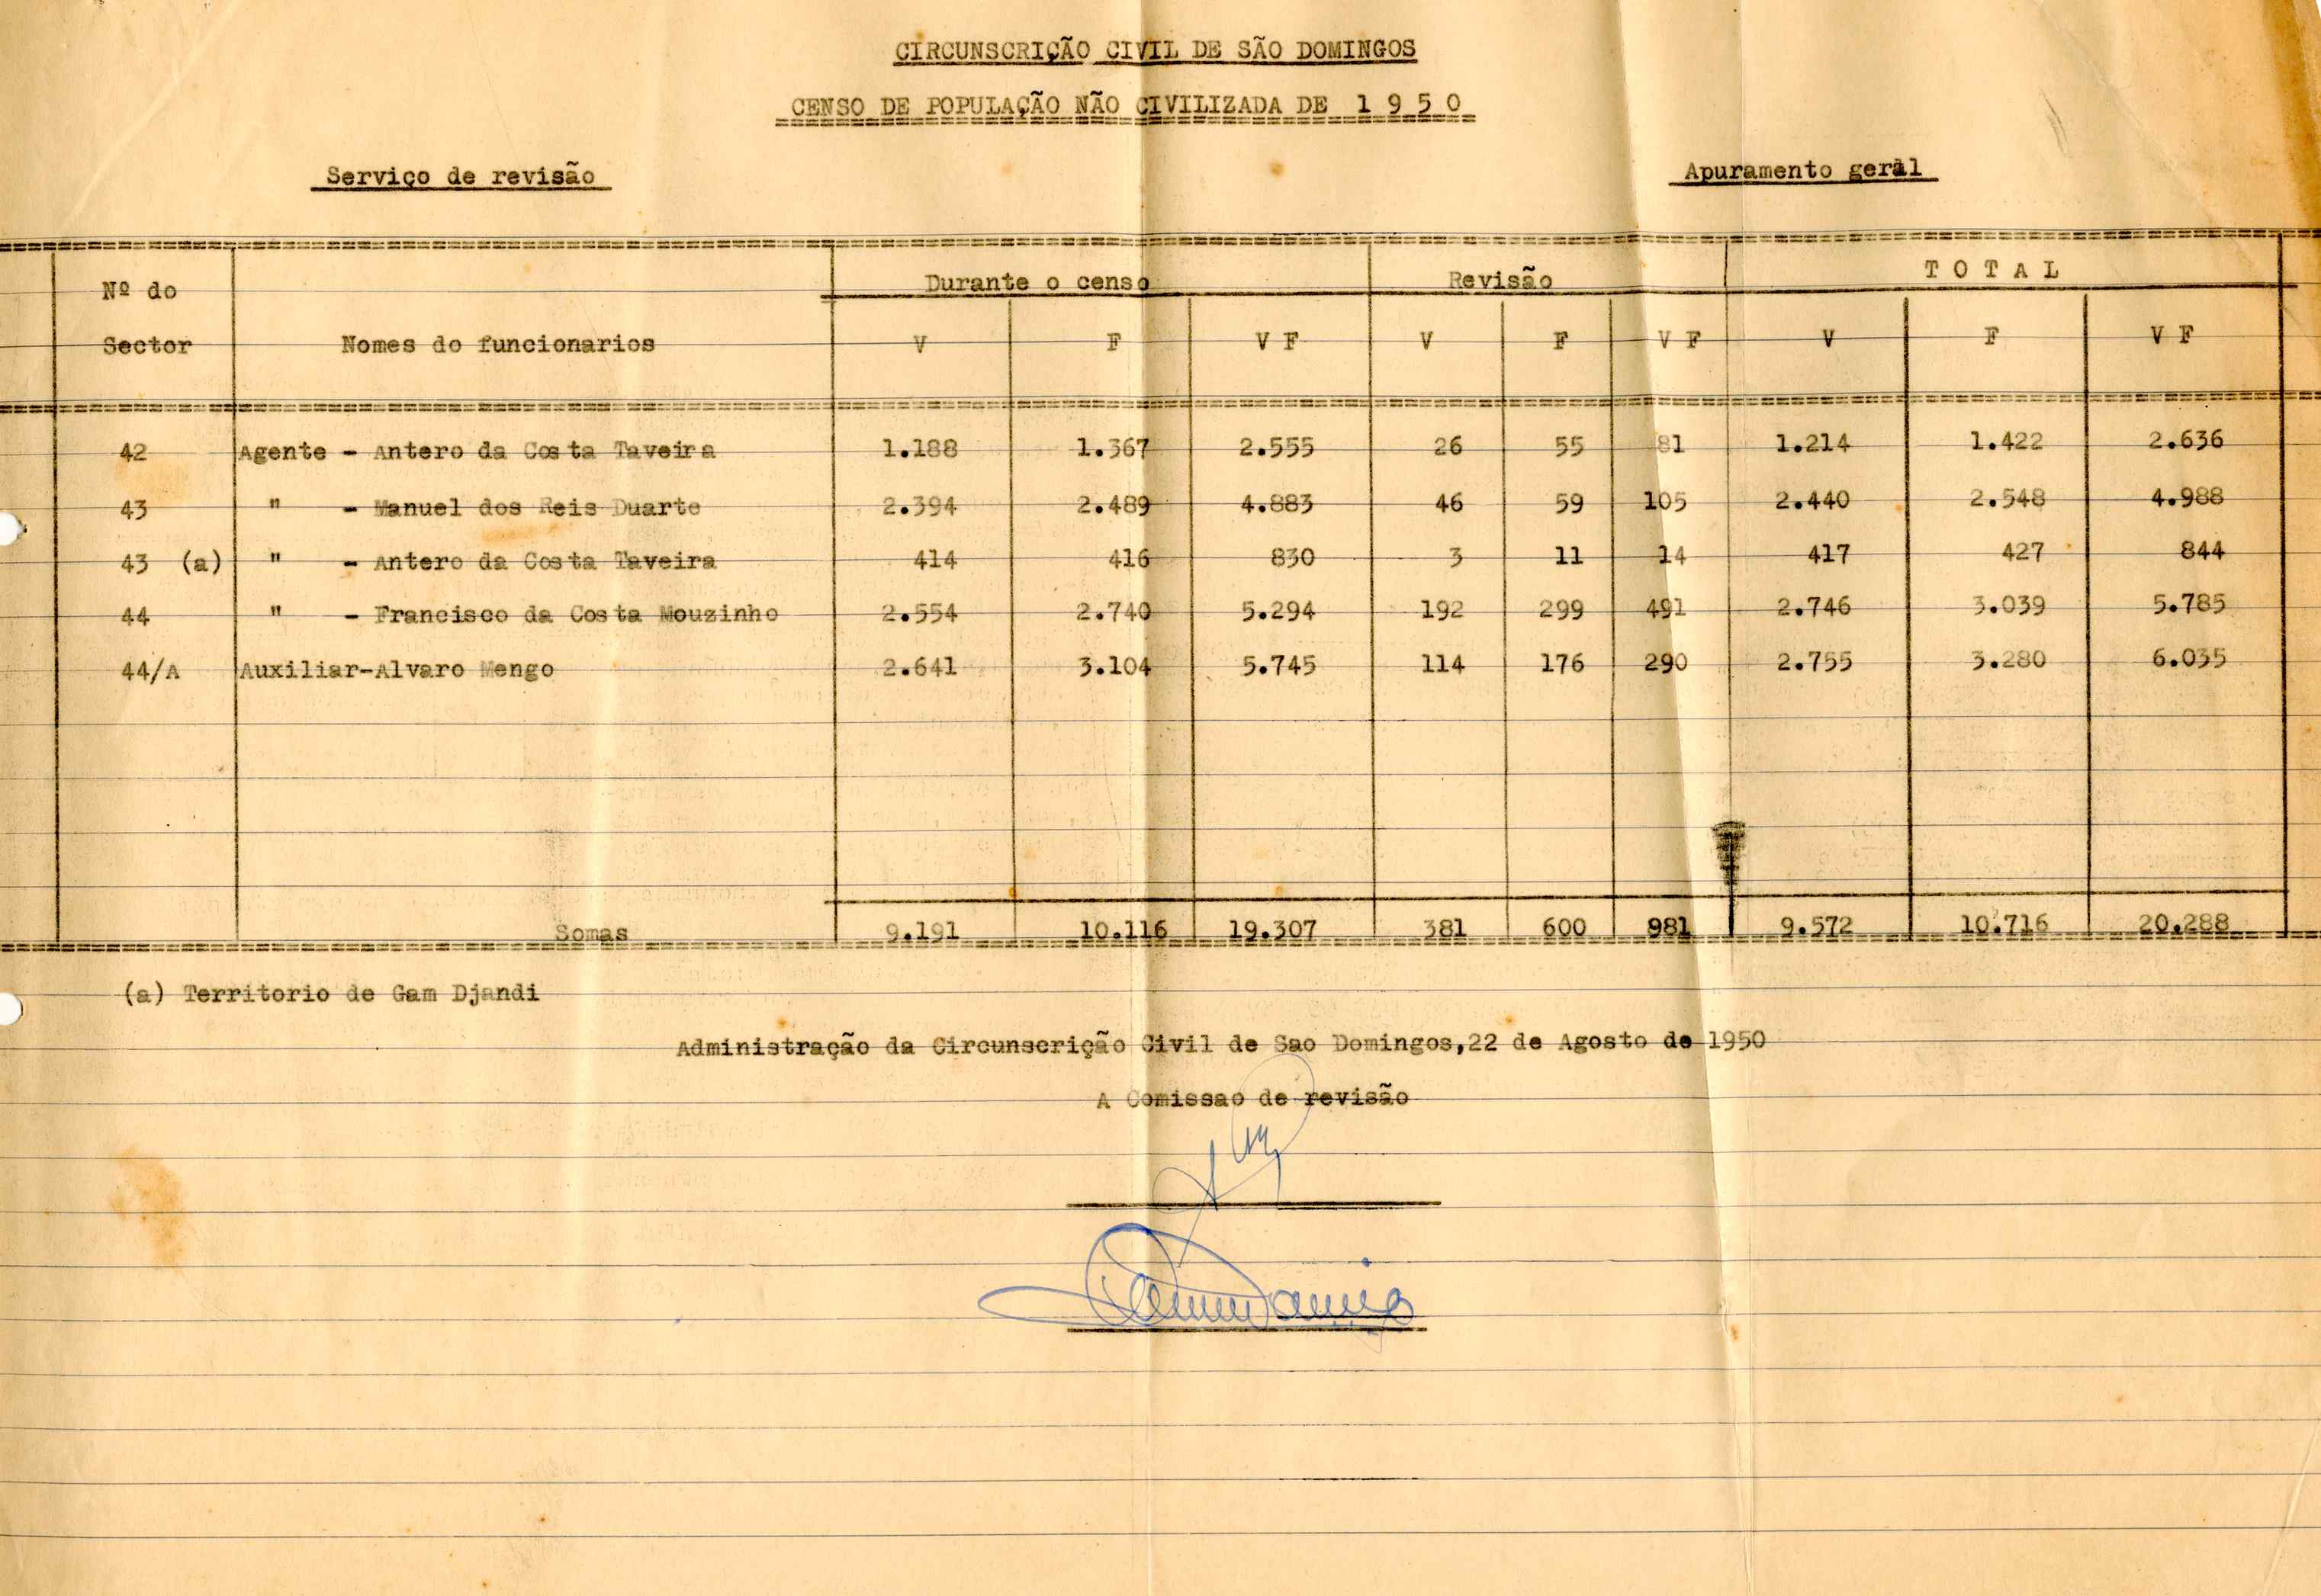 CIRCUNSCRIÇÃO CIVIL DE SÃO DOMINGOS
CENSO DE POPULAÇÃO NÃO CIVILIZADA DE 1 9 5 0
Serviço de revisão Apuramento geràl
Durante o censo Revisão T O T A L
Nº do
Sector Nomes do funcionarios V F V F V F V F V F V F
42 Agente - Antero da Costa Taveira 1.188 1.367 2.555 26 55 81 1.214 1.422 2.636
43 " - Manuel dos Reis Duarte 2.394 2.489 4.883 46 59 105 2.440 2.548 4.988
43 (a) " - Antero da Costa Taveira 414 416 830 3 11 14 417 427 844
44 " - Francisco da Costa Mouzinho 2.554 2.740 5.294 192 299 491 2.746 3.039 5.785
44/A Auxiliar-Alvaro Mengo 2.641 3.104 5.745 114 176 290 2.755 3.280 6.035
Somas 9.191 10.116 19.307 381 600 981 9.572 10.716 20.288
(a) Territorio de Gam Djandi
Administração da Circunscrição Civil de Sao Domingos,22 de Agosto de 1950
A Comissao de revisão